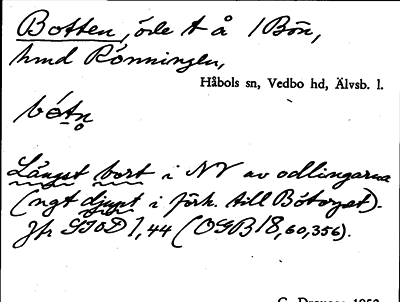 Botten, öde t å 1 Bön,
hmd Rönningen,
Håbols sn, Vedbo hd, Älvsb. l.
bótn̥
Längst bort i NV av odlingarna
(ngt djupt i förh. till Bötorpet).
Jfr SIOD 1, 44 (OGB 18, 60, 356).